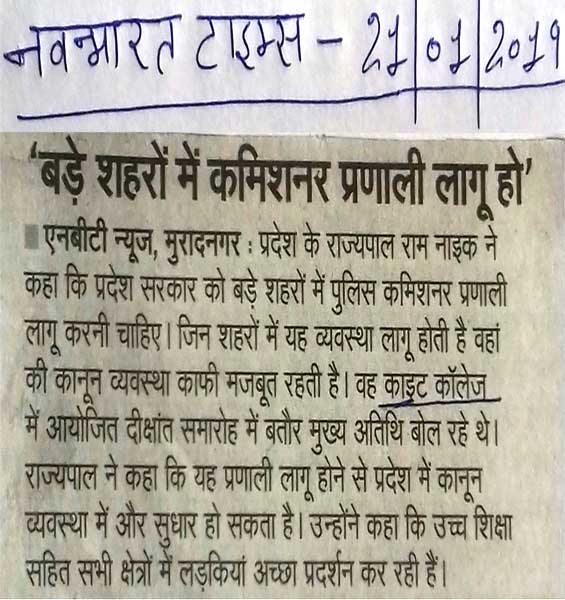 नवभारत टाइम्स - 21/01/2019
'बड़े शहरों में कमिशनर प्रणाली लागू हो'
एनबीटी न्यूज, मुरादनगर : प्रदेश के राज्यपाल राम नाइक ने
कहा कि प्रदेश सरकार को बड़े शहरों में पुलिस कमिशनर प्रणाली
लागू करनी चाहिए। जिन शहरों में यह व्यवस्था लागू होती है वहां
की कानून व्यवस्था काफी मजबूत रहती है। वह काइट कॉलेज
में आयोजित दीक्षांत समारोह में बतौर मुख्य अतिथि बोल रहे थे।
राज्यपाल ने कहा कि यह प्रणाली लागू होने से प्रदेश में कानून
व्यवस्था में और सुधार हो सकता है। उन्होंने कहा कि उच्च शिक्षा
सहित सभी क्षेत्रों में लड़कियां अच्छा प्रदर्शन कर रही हैं।